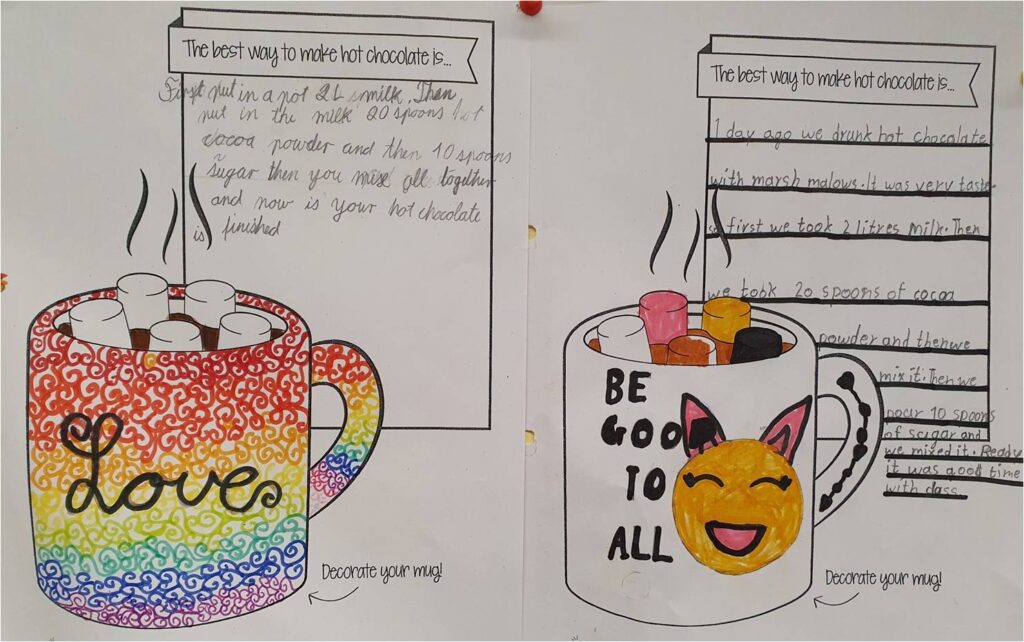 The best way to make hot chocolate is...
First put in a pot 2L milk. Then
put in the milk 20 spoons hot
cocoa powder and then 10 spoons
sugar then you mixe all together
and now is your hot chocolate
is finished
Love
Decorate your mug!
The best way to make hot chocolate is...
1 day ago we drunk hot chocolate
with marsh malows. It was very taste.
first we took 2 litres milk. Then
we took 20 spoons of cocoa
powder and then we
mix it. Then we
pour 10 spoons
of sugar and
we mixed it. Ready
it was good time
with class
BE
GOOD
TO
ALL
Decorate your mug!